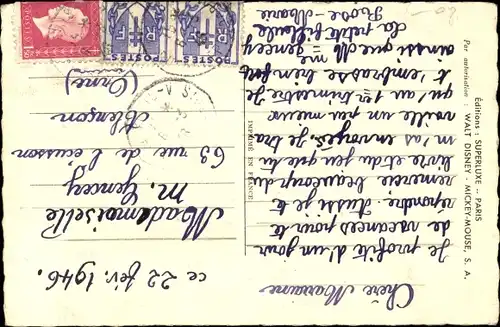 ce 22 fév. 1946.
Chère Marraine
Je profite d'un jour
de vacances pour te
répondre. Aussi je te
remercie beaucoup du
livre et du jeu que tu
m'as envoyés. Je tra
vaille un peu mieux
qu'au 1er trimestre. Je
t'embrasse bien fort
ainsi que Me Gencey
La petite filleule
Rose-Marie
Mademoiselle
M. Gencey
63 rue de l'ecusson
Alençon
(Orne)
Éditions : SUPERLUXE - PARIS
Par autorisation : WALT DISNEY - MICKEY-MOUSE, S. A.
IMPRIMÉ EN FRANCE
RF
POSTES
RF
POSTES